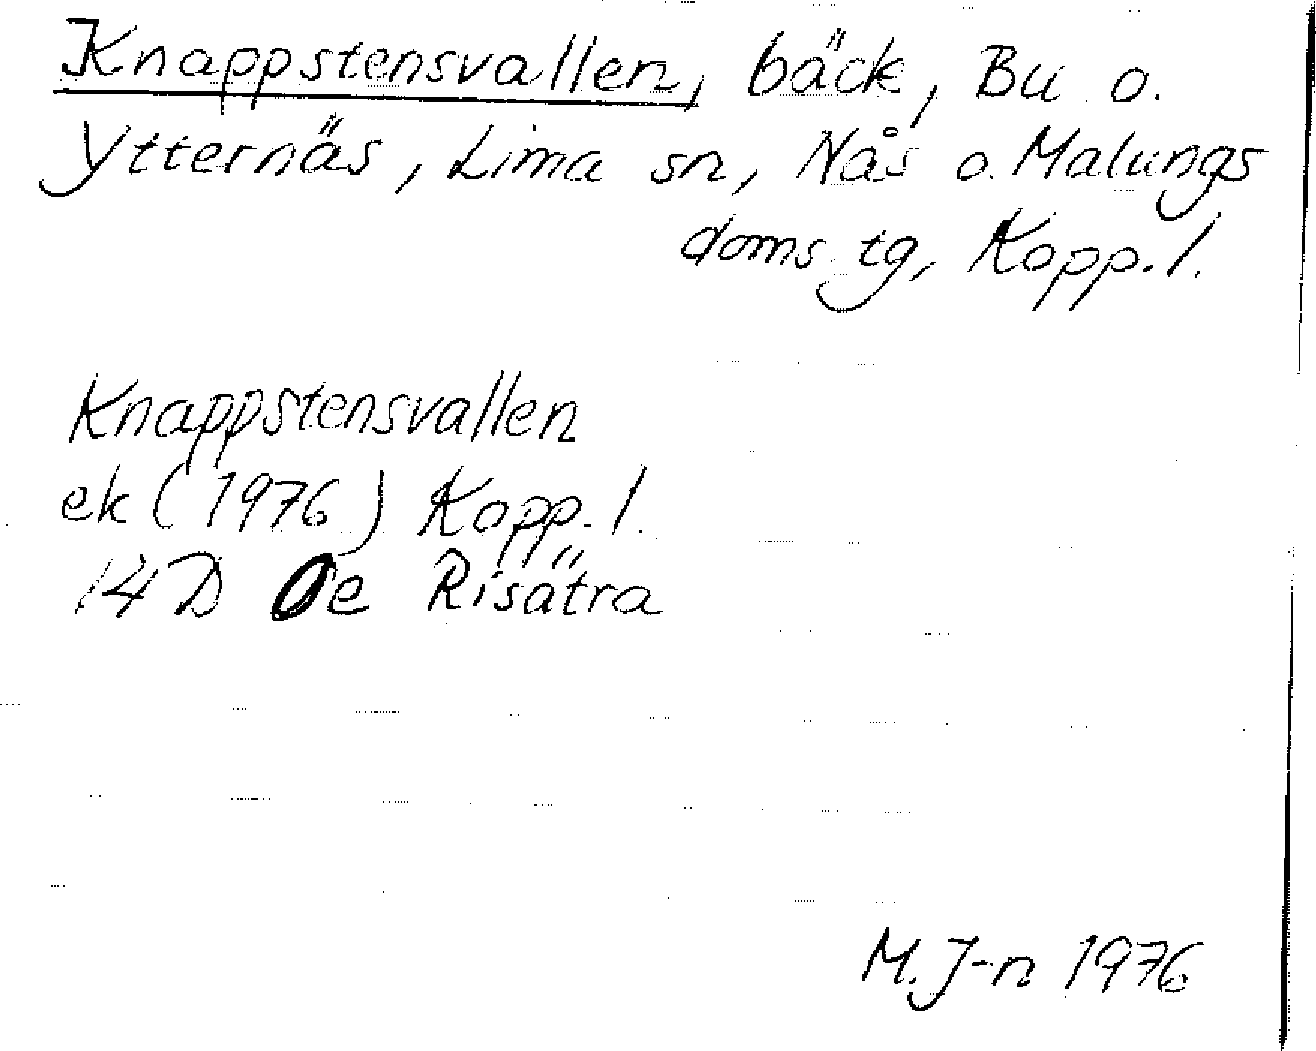 Knappstensvallen, bäck, Bu o.
Ytternäs, Lima sn, Nås o. Malungs
doms tg, Kopp. l.
Knappstensvallen
ek (1976) Kopp. l.
14D 0e Risätra
M. J-n 1976